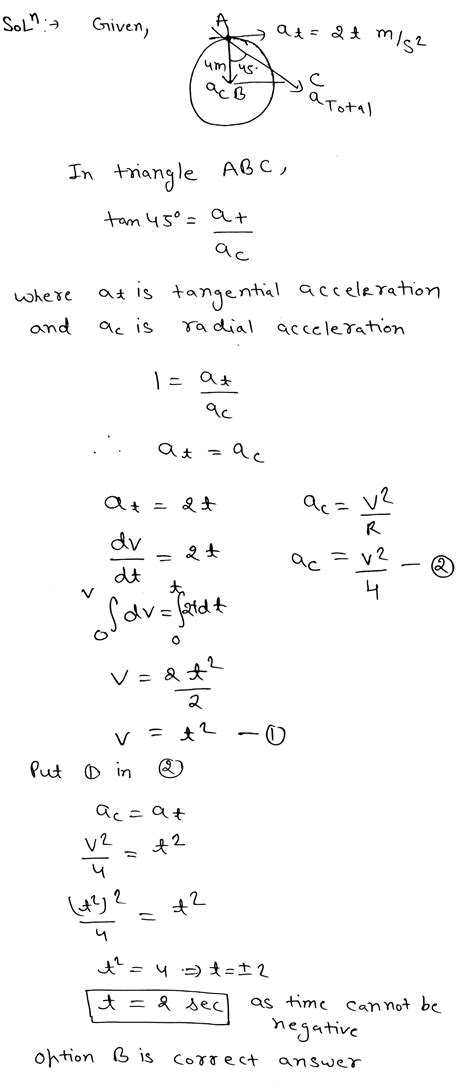 Solⁿ:→ Given,
A
aₜ = 2t m/s²
4m 45°
a_c B
C
a_Total
In triangle ABC,
tan 45° = aₜ / a_c
where aₜ is tangential acceleration
and a_c is radial acceleration
1 = aₜ / a_c
∴ aₜ = a_c
aₜ = 2t
dv/dt = 2t
∫₀ᵛ dv = ∫₀ᵗ 2t dt
v = 2t²/2
v = t² — ①
a_c = v²/R
a_c = v²/4 — ②
Put ① in ②
a_c = aₜ
v²/4 = t²
(t²)²/4 = t²
t² = 4 ⇒ t = ±2
t = 2 sec as time cannot be
negative
option B is correct answer